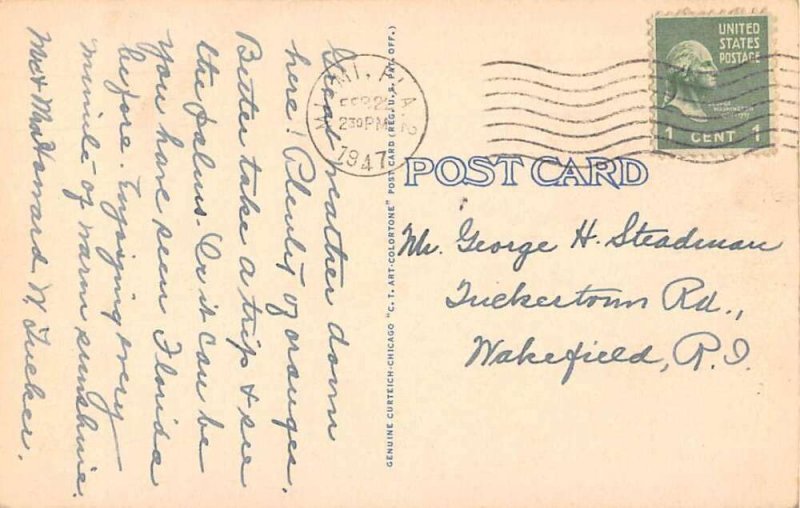 Great weather down
here! Plenty of oranges.
Better take a trip & see
the palms. Or it can be
you have seen Florida
before. Enjoying every
minute of warm sunshine.
Mr & Mrs Howard W. Tucker.
GENUINE CURTEICH-CHICAGO "C. T. ART-COLORTONE" POST CARD (REG. U. S. PAT. OFF.)
MIAMI, FLA. 2
FEB 2
2 30 PM
1947
UNITED
STATES
POSTAGE
1 CENT 1
POST CARD
Mr. George H. Steadman
Tuckertown Rd.,
Wakefield, R.I.